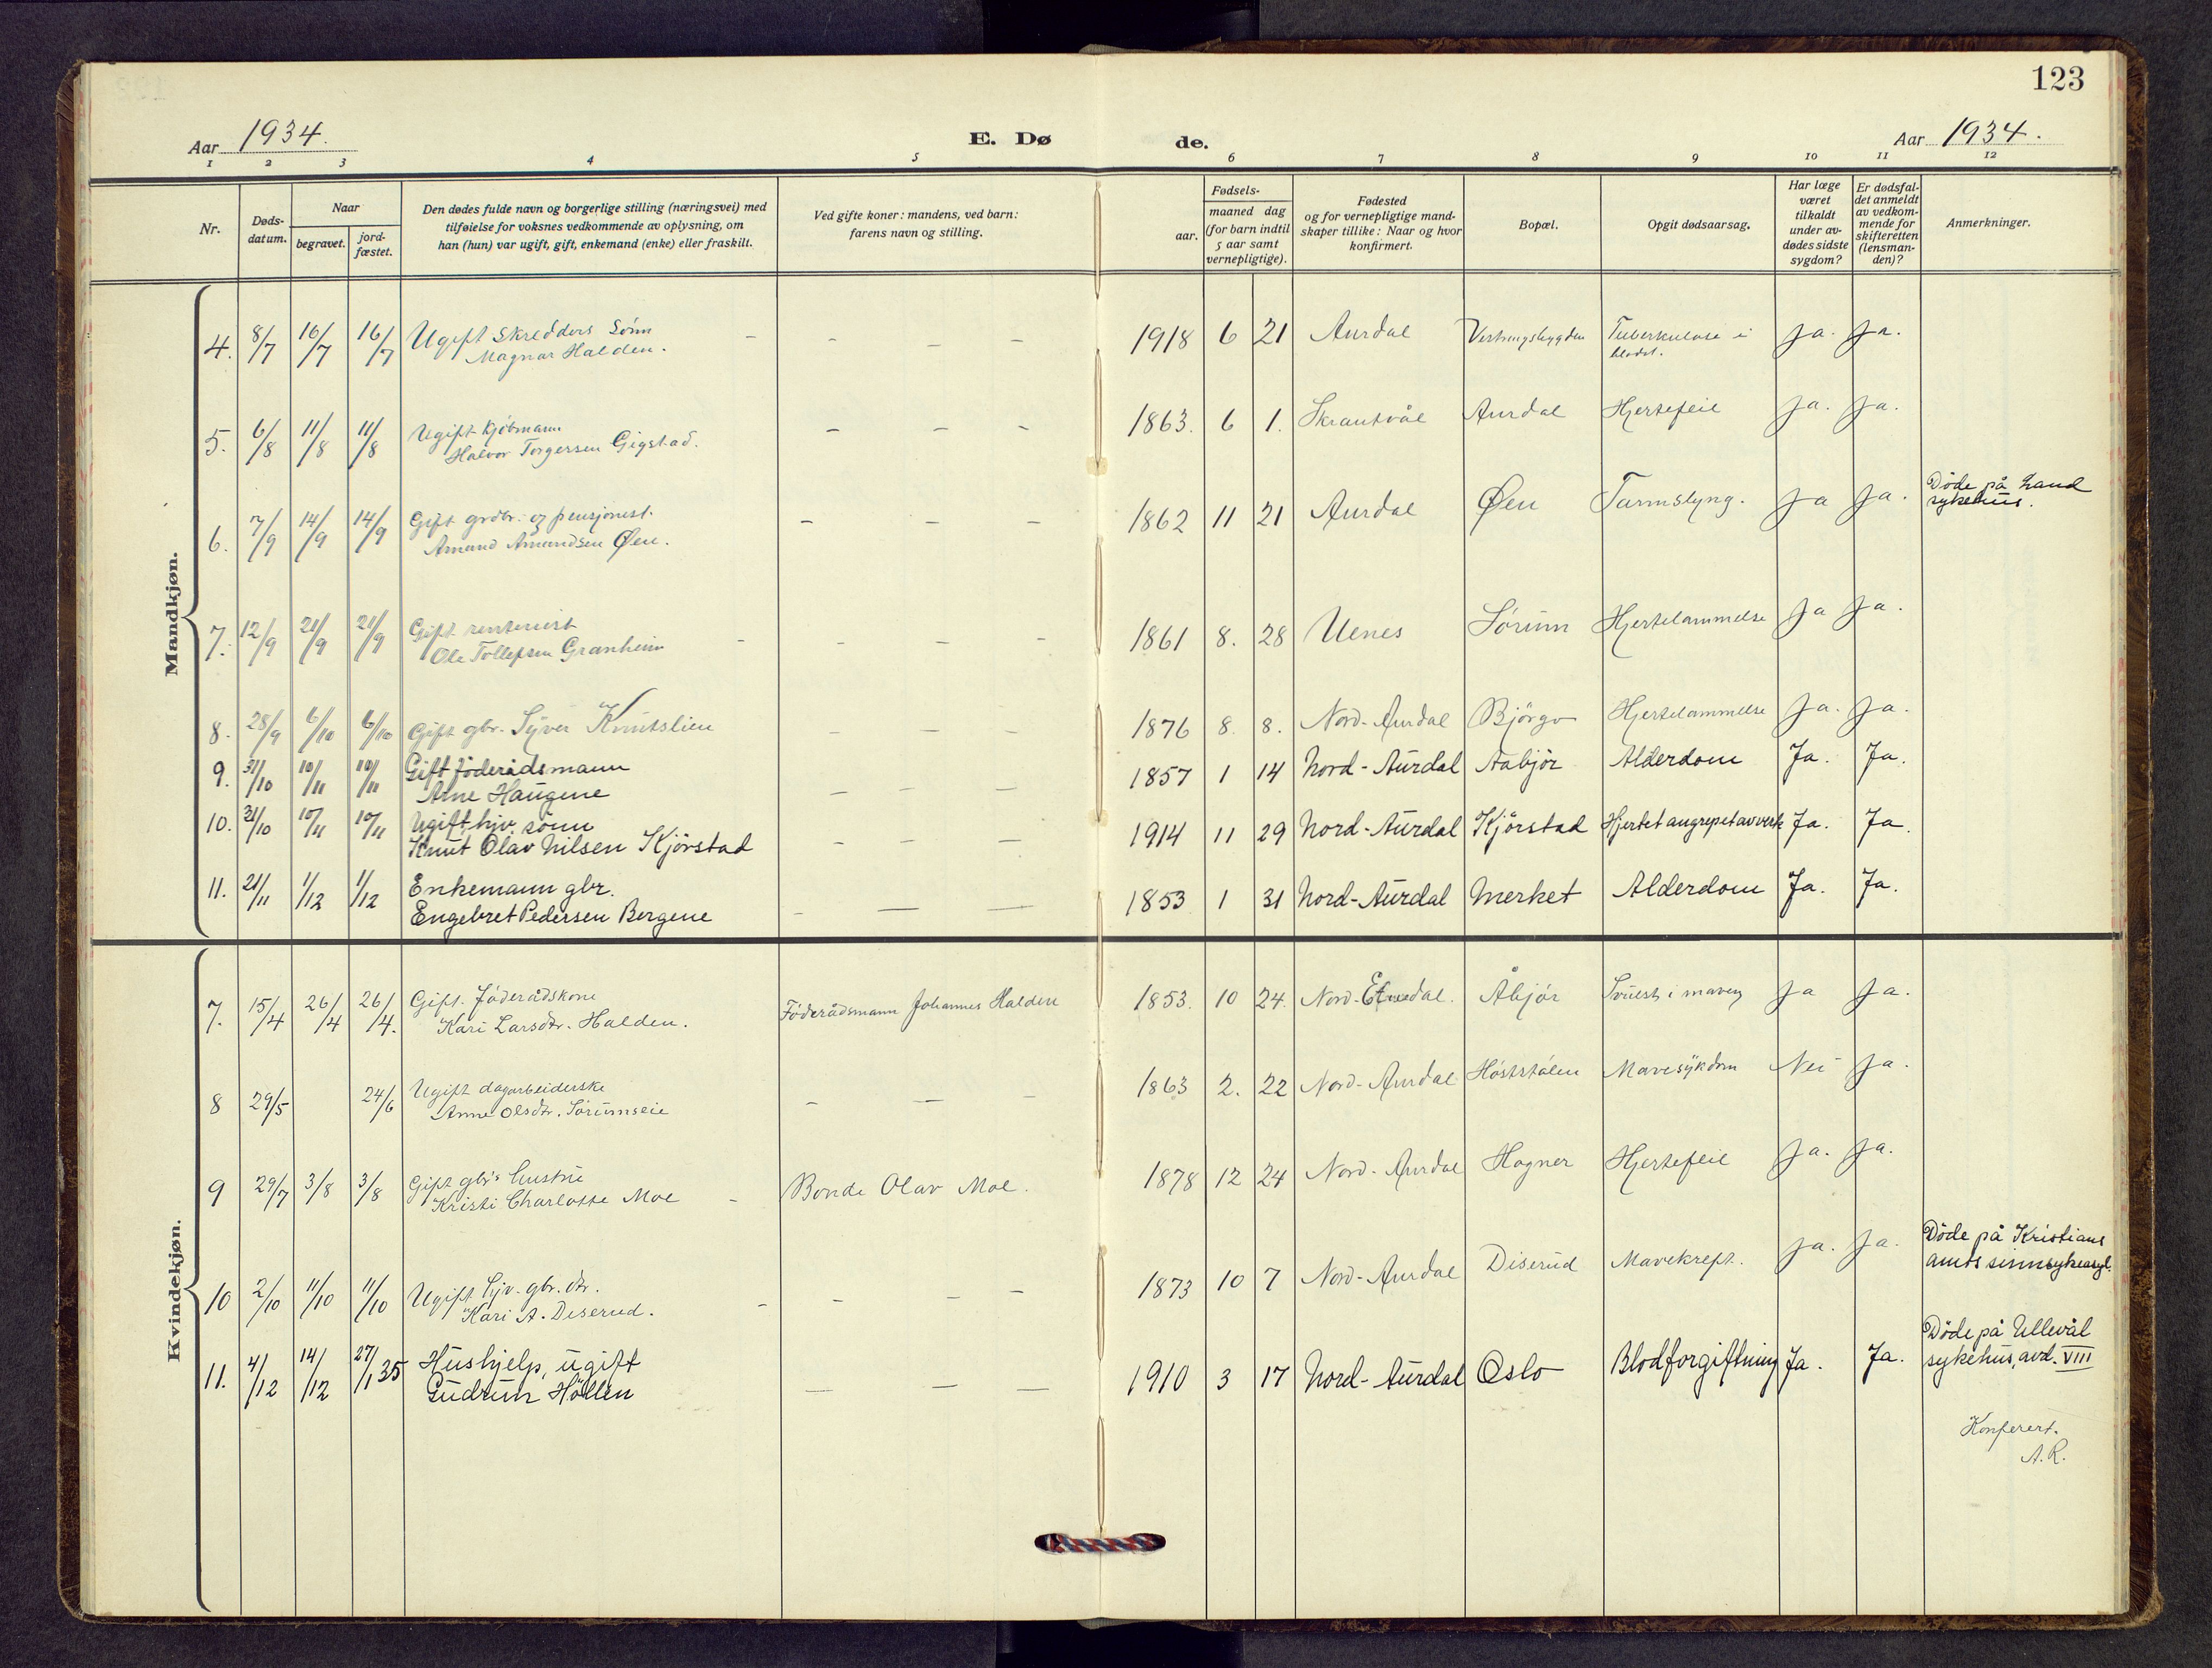 123
Aar 1934.
E. Døde.
Aar 1934.
1 2 3 4 5 6 7 8 9 10 11 12
Nr.
Døds-
datum.
Naar
begravet.
jord-
fæstet.
Den dødes fulde navn og borgerlige stilling (næringsvei) med
tilføielse for voksnes vedkommende av oplysning, om
han (hun) var ugift, gift, enkemand (enke) eller fraskilt.
Ved gifte koner: mandens, ved barn:
farens navn og stilling.
Fødsels-
aar.
maaned dag
(for barn indtil
5 aar samt
vernepligtige).
Fødested
og for vernepligtige mand-
skaper tillike: Naar og hvor
konfirmert.
Bopæl.
Opgit dødsaarsag.
Har læge
været
tilkaldt
under av-
dødes sidste
sygdom?
Er dødsfal-
det anmeldt
av vedkom-
mende for
skifteretten
(lensman-
den)?
Anmerkninger.
Mandkjøn.
4. 8/7 16/7 16/7 Ugift skredders sönn - - - - 1918 6 21 Aurdal Tuberkulose i Ja. Ja.
Magnar Halden. blodet.
5. 6/8 11/8 11/8 Ugift kjöbmann - - - 1863. 6 1. Skrautvål Aurdal Hjertefeil Ja. Ja.
Halvor Torgersen Gigstad.
6. 7/9 14/9 14/9 Gift grdbr. og pensjonist. - - - 1862 11 21 Aurdal Øen Tarmslyng. Ja Ja. Döde på Land
Amund Amundsen Øen. sykehus.
7. 12/9 21/9 21/9 Gift rentenist - - - - 1861 8. 28 Ulnes Sörum Hjertelammelse Ja Ja.
Ole Tollefsen Granheim
8. 28/9 6/10 6/10 Gift gbr. Syver Knutslien - - - 1876 8. 8. Nord-Aurdal Björgo Hjertelammelse Ja. Ja.
9. 31/10 10/11 10/11 Gift föderådsmann - - - 1857 1 14 Nord-Aurdal Aabjör Alderdom Ja. Ja.
Arne Haugene
10. 31/10 10/11 10/11 Ugift, hjv. sönn - - - 1914 11 29 Nord-Aurdal Kjörstad Hjertet angrepet av verk Ja. Ja.
Knut Olav Nilsen Kjörstad
11. 21/11 1/12 1/12 Enkemann gbr. - - - 1853 1 31 Nord-Aurdal Merket Alderdom Ja. Ja.
Engebret Pedersen Bergene
Kvindekjøn.
7. 15/4 26/4 26/4. Gift. föderådskone Föderådsmann Johannes Halden 1853. 10 24. Nord-Etnedal. Åbjör Svulst i maven Ja Ja.
Kari Larsdtr. Halden.
8 29/5 24/6 Ugift dagarbeiderske - - - 1863 2. 22 Nord-Aurdal Höststölen Mavesykdom Nei Ja.
Anne Olsdtr. Sörumseie
9 29/7 3/8 3/8 Gift gbr's hustru - Bonde Olav Moe. 1878 12 24 Nord-Aurdal Hagner Hjertefeil Ja. Ja.
Kristi Charlotte Moe
10 2/10 11/10 11/10 Ugift hjv. gbr. dtr. - - - - 1873 10 7 Nord-Aurdal Diserud Mavekreft. Ja. Ja. Döde på Kristians
Kari A. Diserud. amts sinnsykeasyl.
11. 4/12 14/12 27/1 35 Hushjelp, ugift - - - 1910 3 17 Nord-Aurdal Oslo Blodforgiftning Ja. Ja. Döde på Ullevål
Gudrun Höllen sykehus, avd. VIII
Konferert.
A. R.